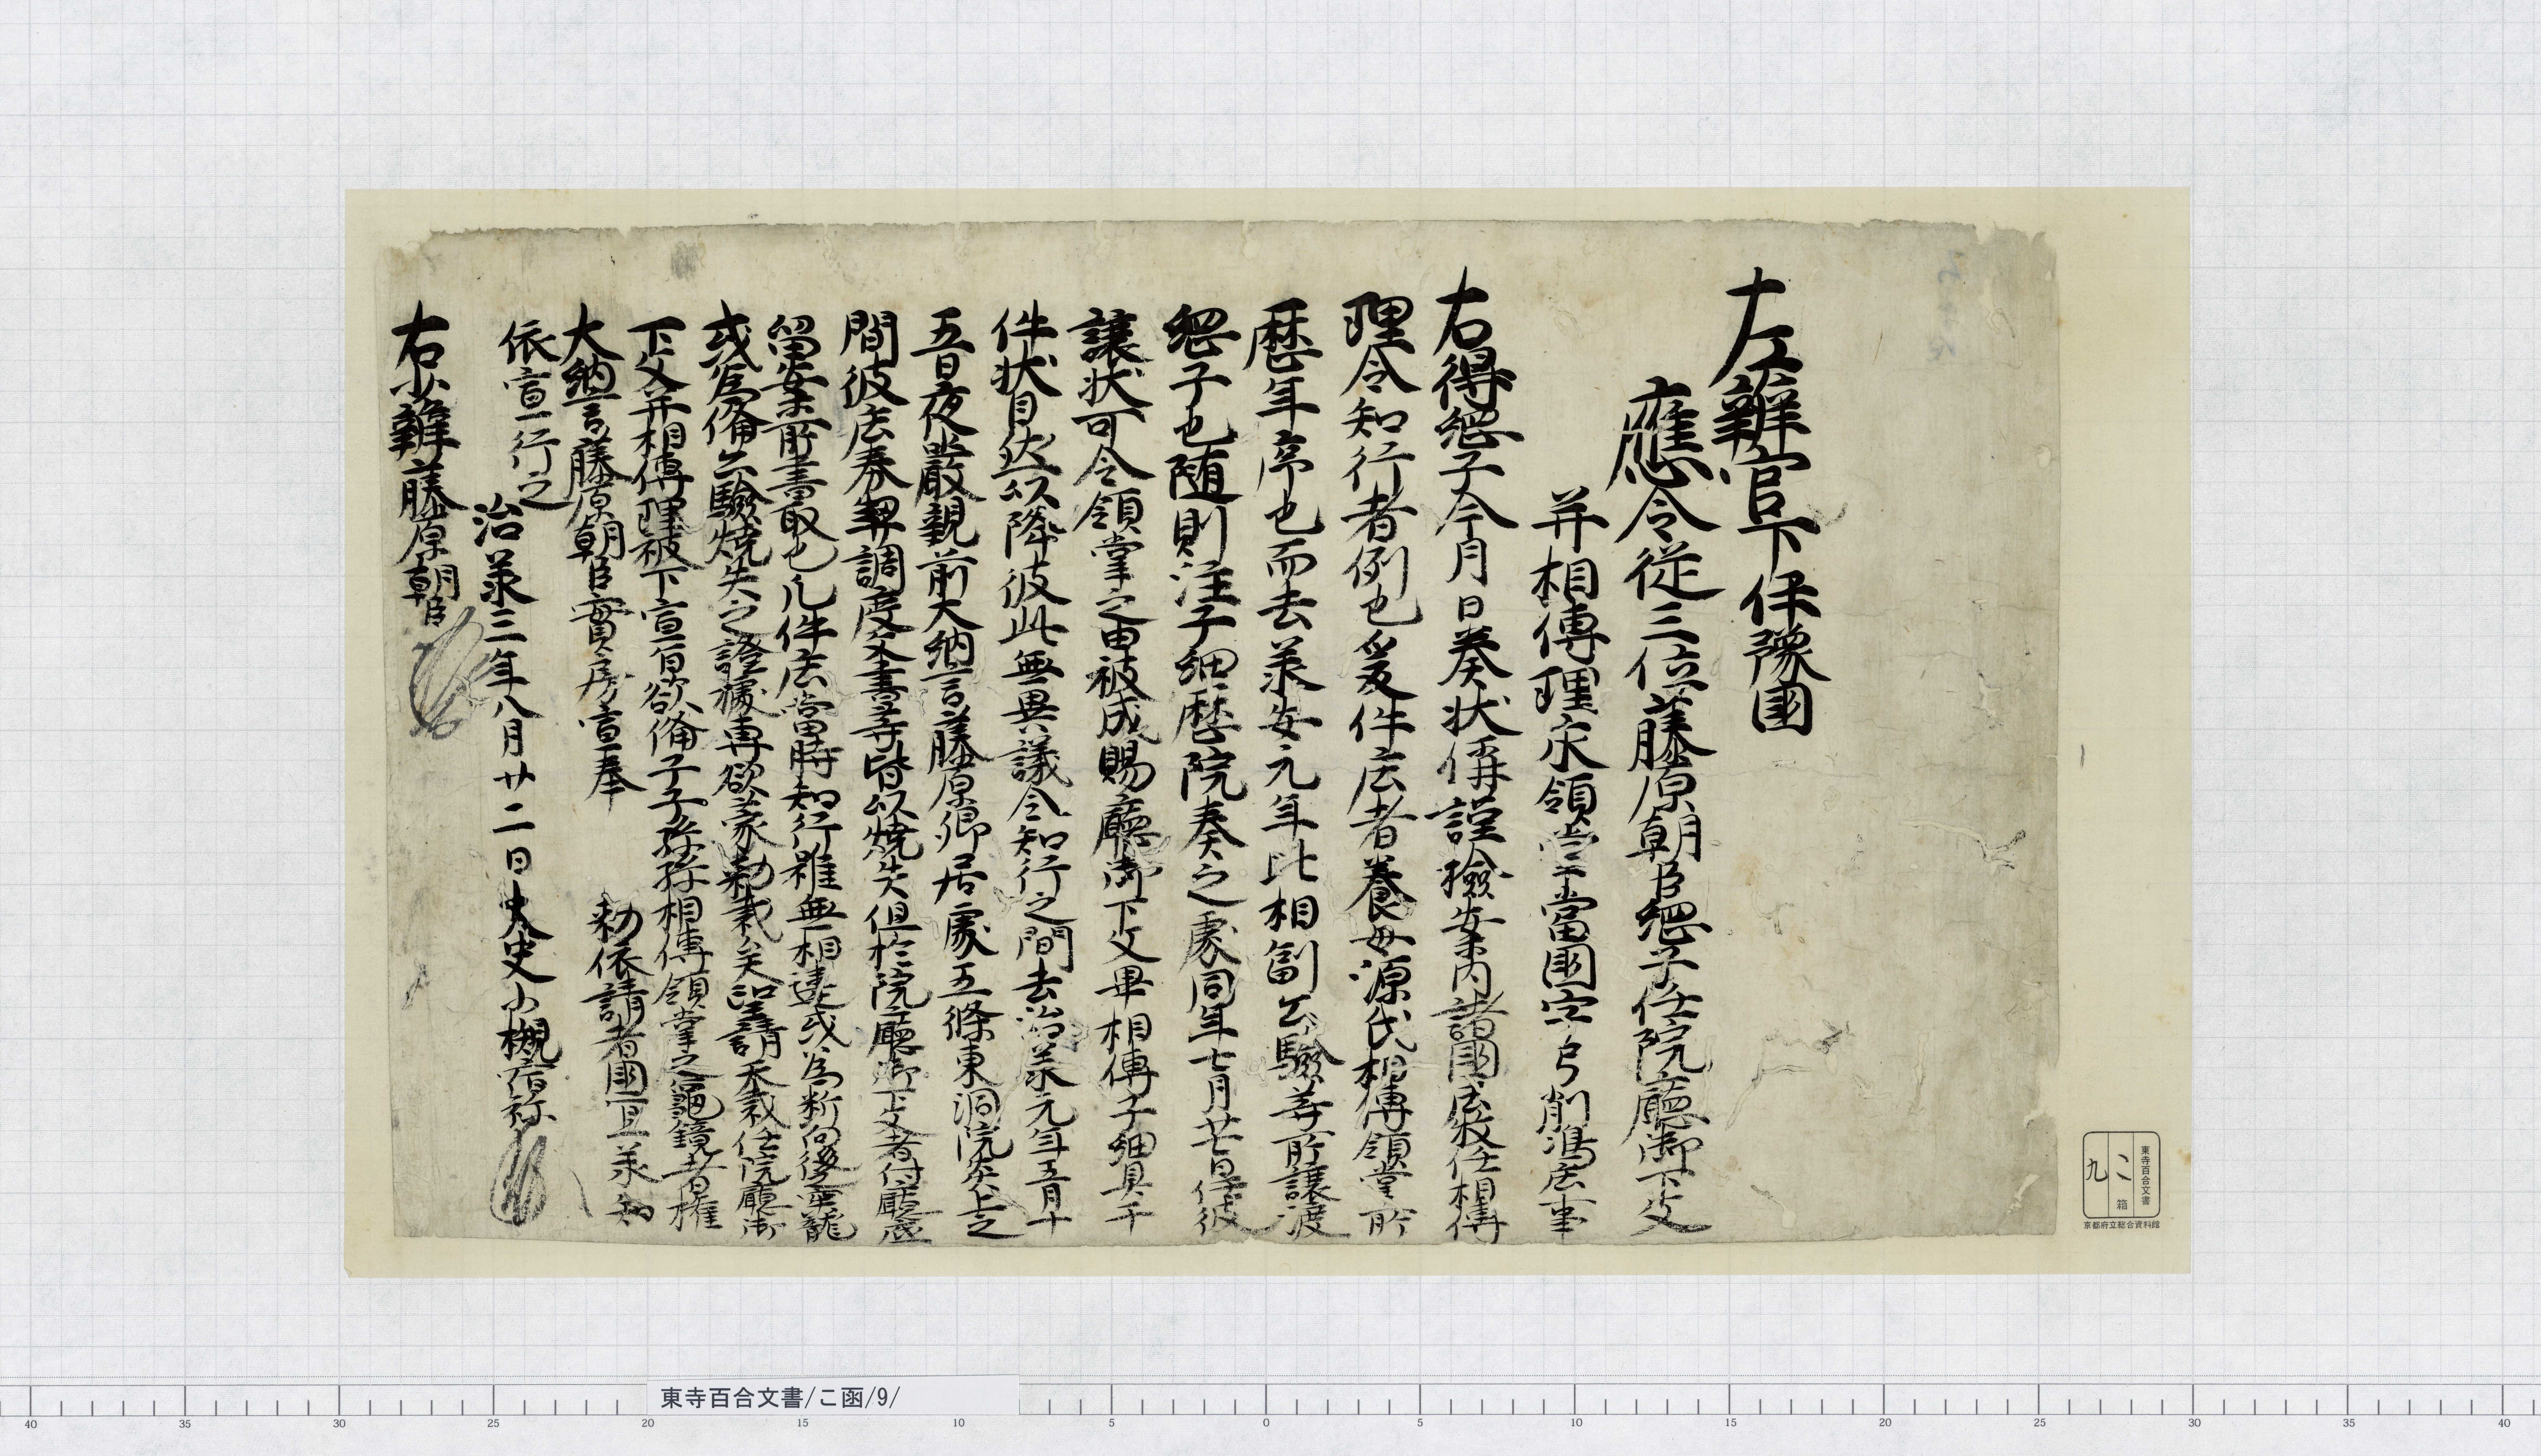 左辨官下伊豫國
應令従三位藤原朝臣綱子任院廳御下文
并相傳理永領掌當國字弓削嶋庄事
右得綱子今月日奏状偁謹撿案内諸國庄牧任相傳
理令知行者例也爰件庄者養母源氏相傳領掌所
歴年序也而去承安元年比相副公驗等所譲渡
綱子也随則注子細歴院奏之處同年七月廿日任彼
譲状可令領掌之由被成賜廳御下文畢相傳子細具于
件状自尓以降彼此無異議令知行之間去治承元年五月十
五日夜嚴親前大納言藤原卿居處五條東洞院炎上之
間彼庄券契調度文書等皆以焼失但於院廳御下文者付廳底
留案所書取也凡件庄當時知行雖無相違或為断向後牢籠
或為備公驗焼失之證據専欲蒙勅裁矣望請天裁任院廳御
下文并相傳理被下宣旨欲備子子孫孫相傳領掌之龜鏡者權
大納言藤原朝臣實房宣奉　勅依請者國宜承知
依宣行之
治承三年八月廿二日大史小槻宿祢
右少辨藤原朝臣
東寺百合文書
こ箱
九
京都府立総合資料館
東寺百合文書/こ函/9/
40 35 30 25 20 15 10 5 0 5 10 15 20 25 30 35 40